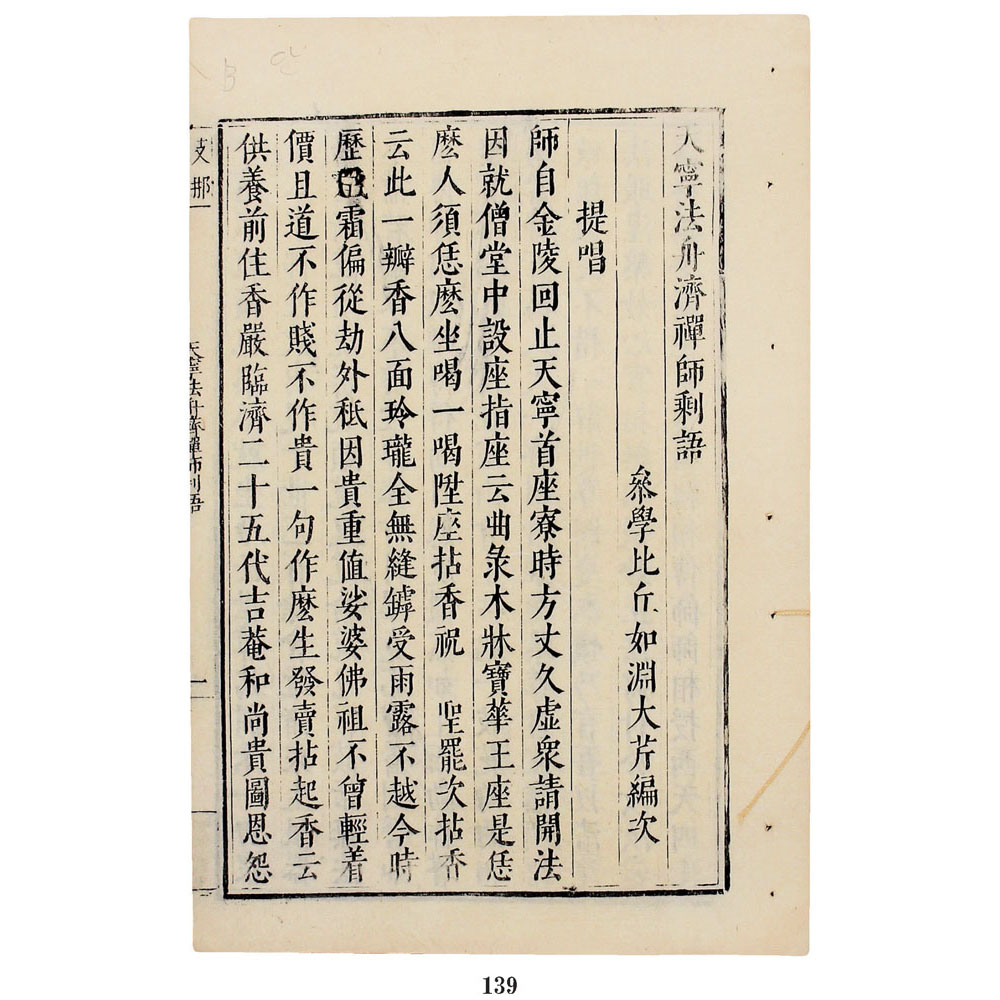 天寧法舟濟禪師剩語
叅學比丘如淵大芹編次
提唱
師自金陵回止天寧首座寮時方丈久虛衆請開法
因就僧堂中設座指座云曲彔木牀寶華王座是恁
麽人須恁麽坐喝一喝陞座拈香祝 聖罷次拈香
云此一瓣香八面玲瓏全無縫罅受雨露不越今時
歷霜偏從劫外秖因貴重值娑婆佛祖不曾輕着
價且道不作賤不作貴一句作麽生發賣拈起香云
供養前住香嚴臨濟二十五代吉菴和尚貴圖恩怨
支那
天寧法舟濟禪師剩語
一
139